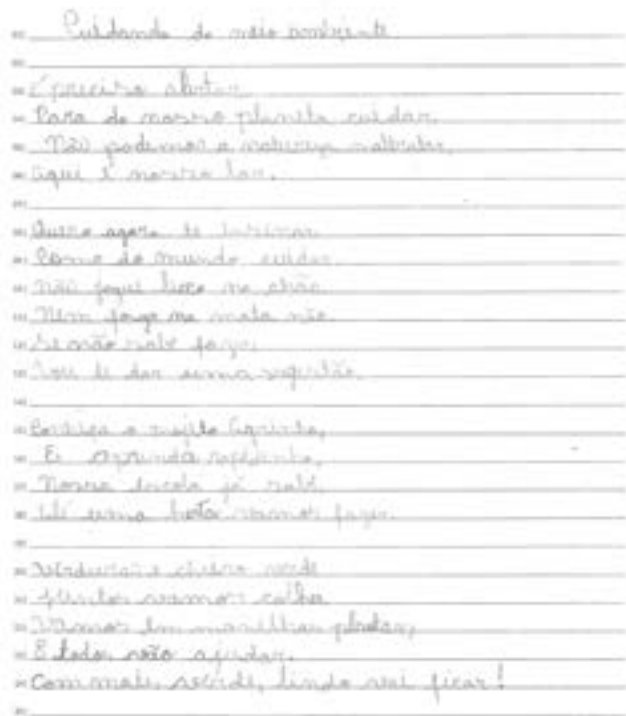 Cuidando do meio ambiente
É preciso alertar
Para do nosso planeta cuidar.
Não podemos a natureza maltratar,
Aqui é nosso lar.
Quero agora te ensinar
Como do mundo cuidar
Não jogue lixo no chão
Nem fogo na mata não
Se não sabe fazer
Vou te dar uma sugestão.
Conheça o projeto Agrinho,
E aprenda rapidinho,
Nossa escola já sabe
Até uma horta vamos fazer.
Verduras e cheiro verde
Juntos vamos colher
Vamos em manilhas plantar,
E todos vão ajudar.
Com mais verde, lindo vai ficar!